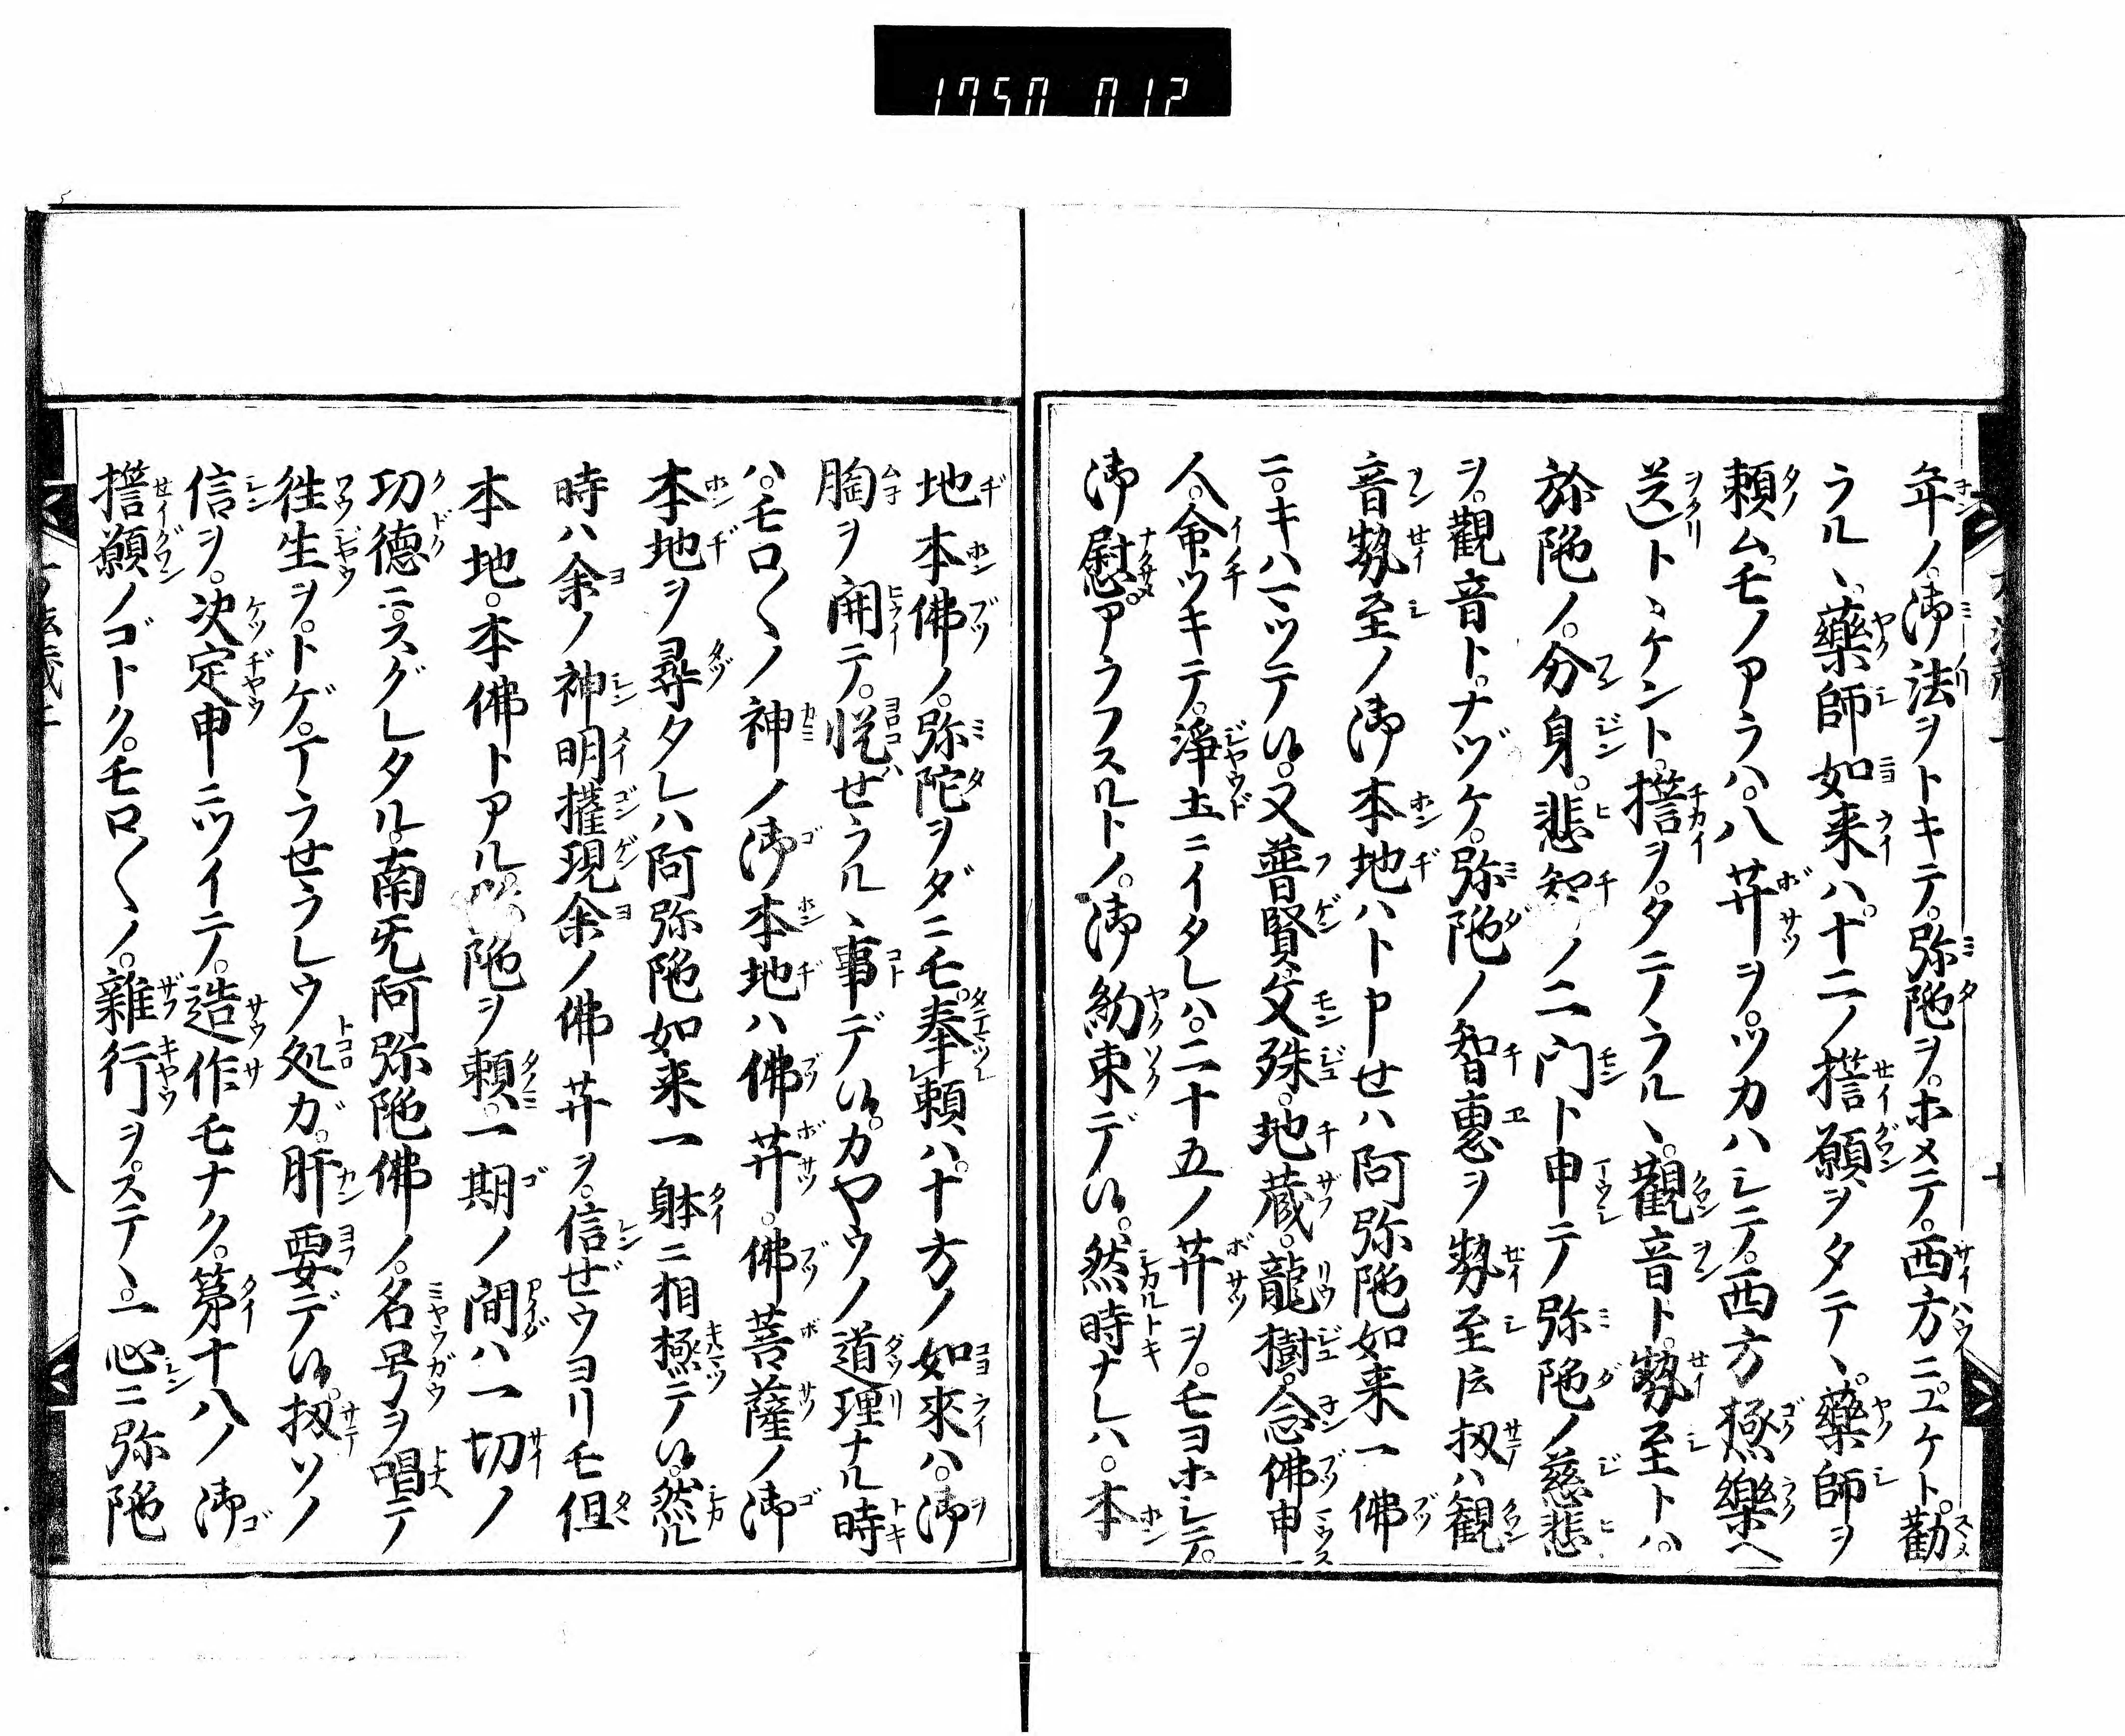 1750 012
年ノ。御法ヲトキテ。弥陁ヲ。ホメテ。西方ニユケト。勸
ラル丶。藥師如来ハ。十二ノ誓願ヲタテ丶。藥師ヲ
頼ム。モノアラハ。八𦬇ヲ。ツカハシテ。西方極樂ヘ
送ト丶ケント。誓ヲ。タテノラル丶。觀音ト。勢至トハ。
弥陁ノ。分身。悲智ノ二門ト申テ弥陁ノ慈悲
ヲ。觀音ト。ナヅケ。弥陁ノ智惠ヲ勢至ト云扨ハ観
音勢至ノ御本地ハト申せハ阿弥陁如来一佛
ニ。キハマツテ候。又普賢。文殊。地蔵。龍樹。念佛申
人。命ツキテ。淨土ニイタレハ。二十五ノ𦬇ヲ。モヨホシテ。
御慰アラフスルトノ。御約束デ候。然時ナレハ。本
地本佛ノ。弥陀ヲダニモ。奉頼ハ。十方ノ如來ハ。御
胸ヲ開テ。悦せラル丶事デ候。カヤウノ道理ナル時
ハ。モロ〱ノ神ノ御本地ハ佛𦬇。佛菩薩ノ御
本地ヲ尋タレハ阿弥陁如来一躰ニ相極テ候。然ル
時ハ余ノ神明權現余ノ佛𦬇ヲ。信ぜウヨリモ但
本地。本佛トアル。陁ヲ頼。一期ノ間ハ一切ノ
功德ニ。スグレタル。南无阿弥陁佛ノ。名号ヲ唱テ
徃生ヲ。トゲ。マラせラレウ処ガ。肝要デ候。扨ソノ
信ヲ。决定申ニツイテノ。造作モナク。第十八ノ御
誓願ノゴトク。モロ〱ノ。雜行ヲ。ステ丶。一心ニ弥陁